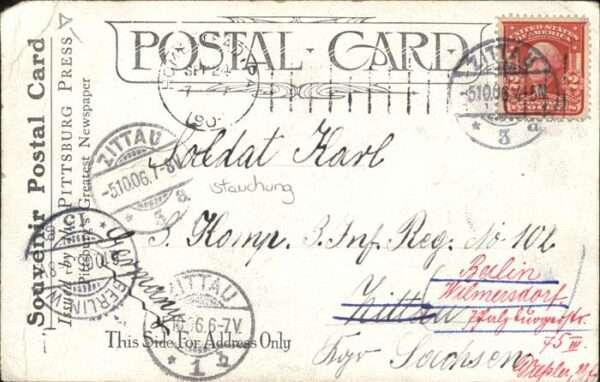 Souvenir Postal Card
Issued by The PITTSBURG PRESS
Pittsburg's Greatest Newspaper
POSTAL CARD
SEP 24
190
ZITTAU
-5.10.06.7-8V.
* 3 a
ZITTAU
-5.10.06.7-8V.
* 3 a
Soldat Karl
Stauchung
5. Komp. 3. Inf. Reg. No 102
Zittau
Berlin
Wilmersdorf
Pfalzburgerstr.
75 III
Germany
BERLIN
W
15
ZITTAU
6-7V.
* 1 b
This Side For Address Only
Kgr Sachsen